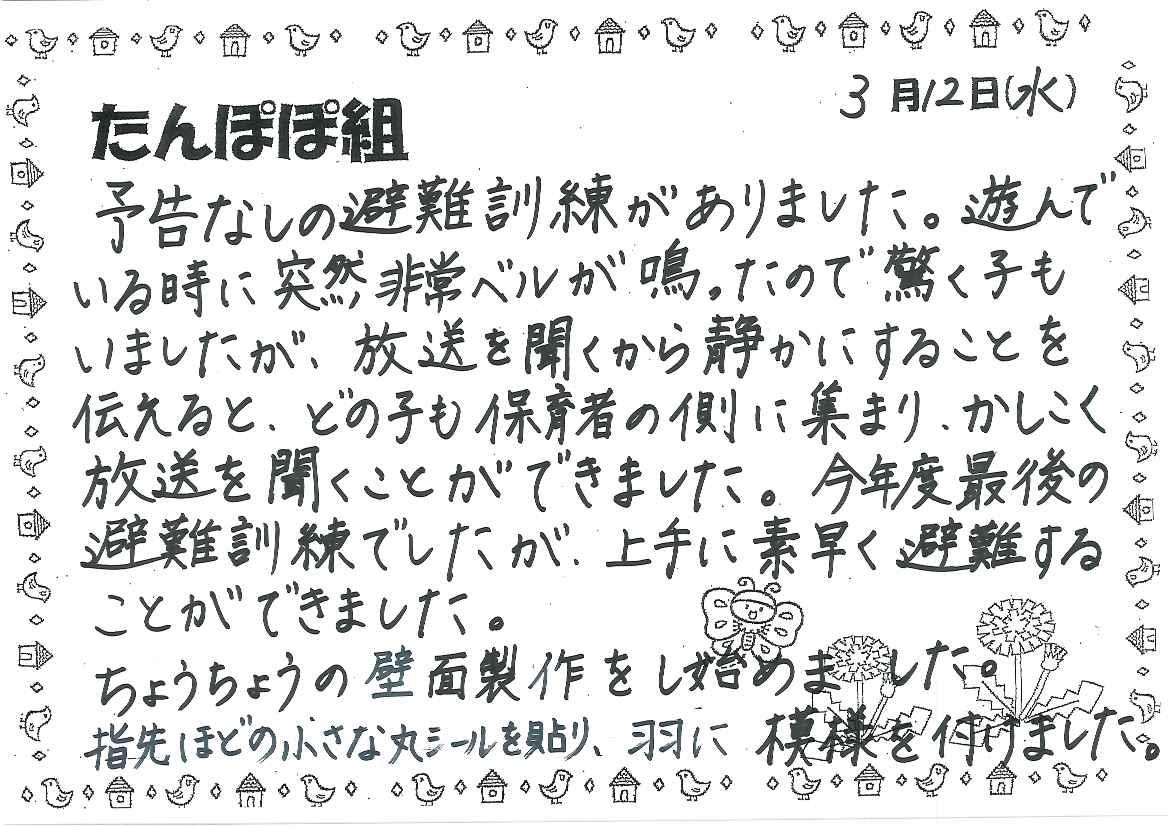 3月12日(水)
たんぽぽ組
予告なしの避難訓練がありました。遊んで
いる時に突然非常ベルが鳴ったので驚く子も
いましたが、放送を聞くから静かにすることを
伝えると、どの子も保育者の側に集まり、かしこく
放送を聞くことができました。今年度最後の
避難訓練でしたが、上手に素早く避難する
ことができました。
ちょうちょうの壁面製作をし始めました。
指先ほどの小さな丸シールを貼り、羽に模様を付けました。